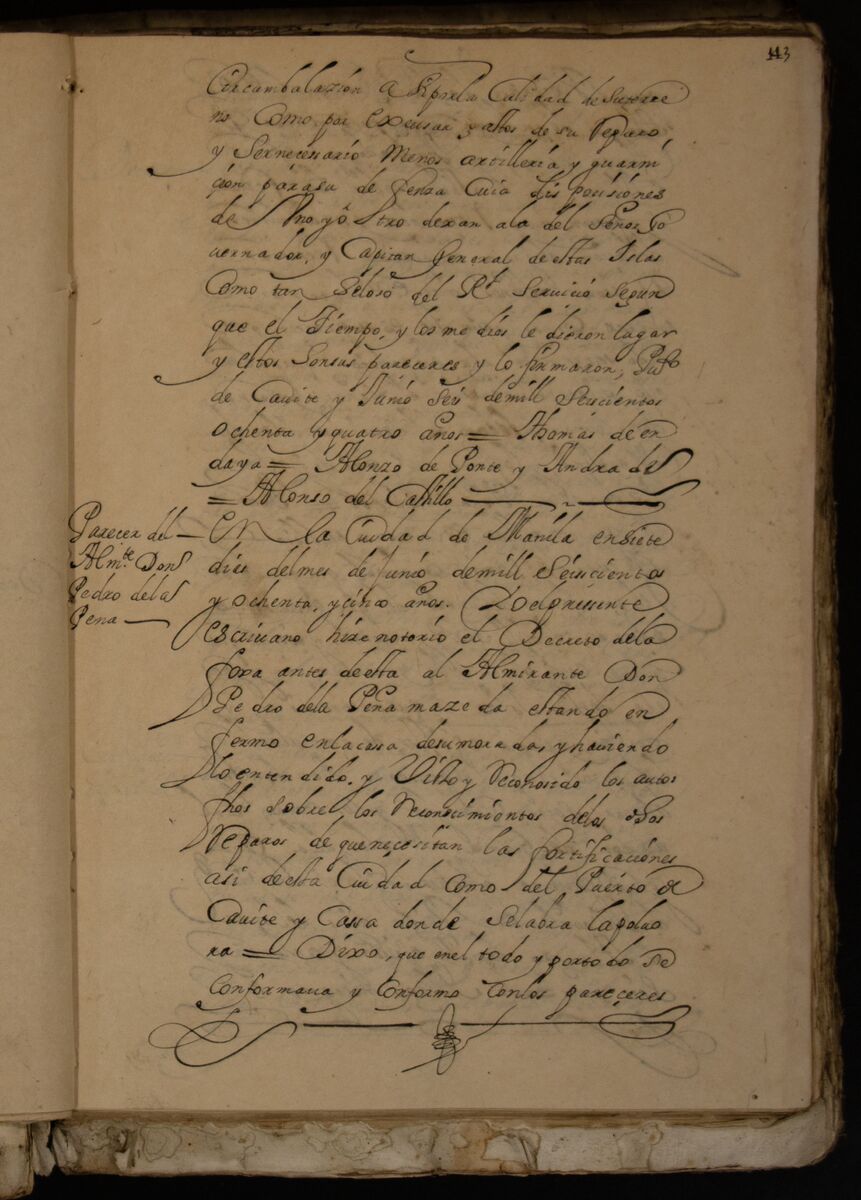 113
Circumbalazion a Spor la Calidad de su terre
no Como por excusar gastos de su Reparo
y Ser necessario Menos artilleria y guarni
çion para su defenza Cuia Dispociciones
de Uno y Otro dexan a la del Señor Go
uernador, y Capitan General de estas Islas
Como tan Seloso del Rl Seruicio Segun
que el Tiempo, y los medios le dieron lugar
y estos Son sus pareceres y lo firmaron, Puto
de Cauite y Junio Seis de mill Seiscientos
ochenta y quatro años = Thomas de en
daya = Alonzo de Ponte y Andrades
= Alonso del Castillo
Parecer del
Almte Don
Pedro de la
Pena
en la Ciudad de Manila en siete
dias del mes de Junio de mill Seiscientos
y ochenta, y cinco años. Yo el pressente
escriuano hize notorio el Decreto de la
foxa antes desta al Almirante Don
Pedro de la Peña mazeda estando en
fermo en la casa de su morada, y hauiendo
lo entendido, y Visto y Reconosido los autos
fhos sobre los Reconosimientos de los dhos
Reparos de que necesitan las fortificaciones
asi desta Ciudad Como del Puerto de
Cauite y Cassa donde Se labra la poluo
ra = Dixo, que en el todo y por todo se
Conformaua y Conformo Con los pareçeres